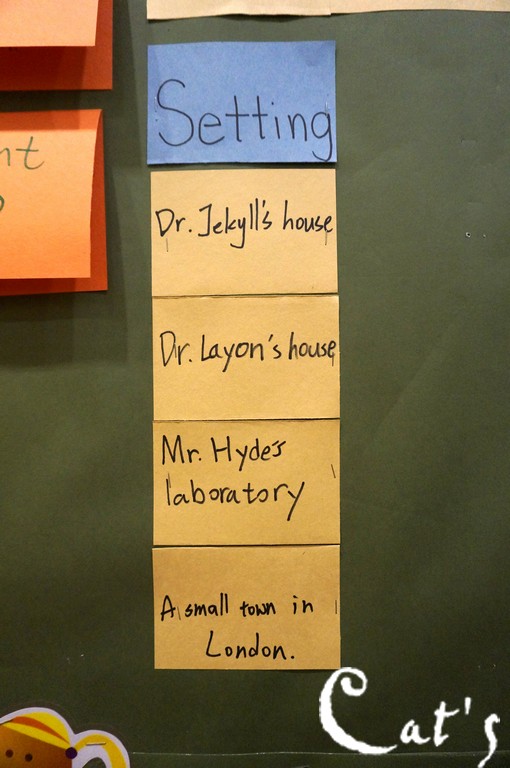 nt
Setting
Dr. Jekyll's house
Dr. Layon's house
Mr. Hyde's
laboratory
A small town in
London.
Cat's